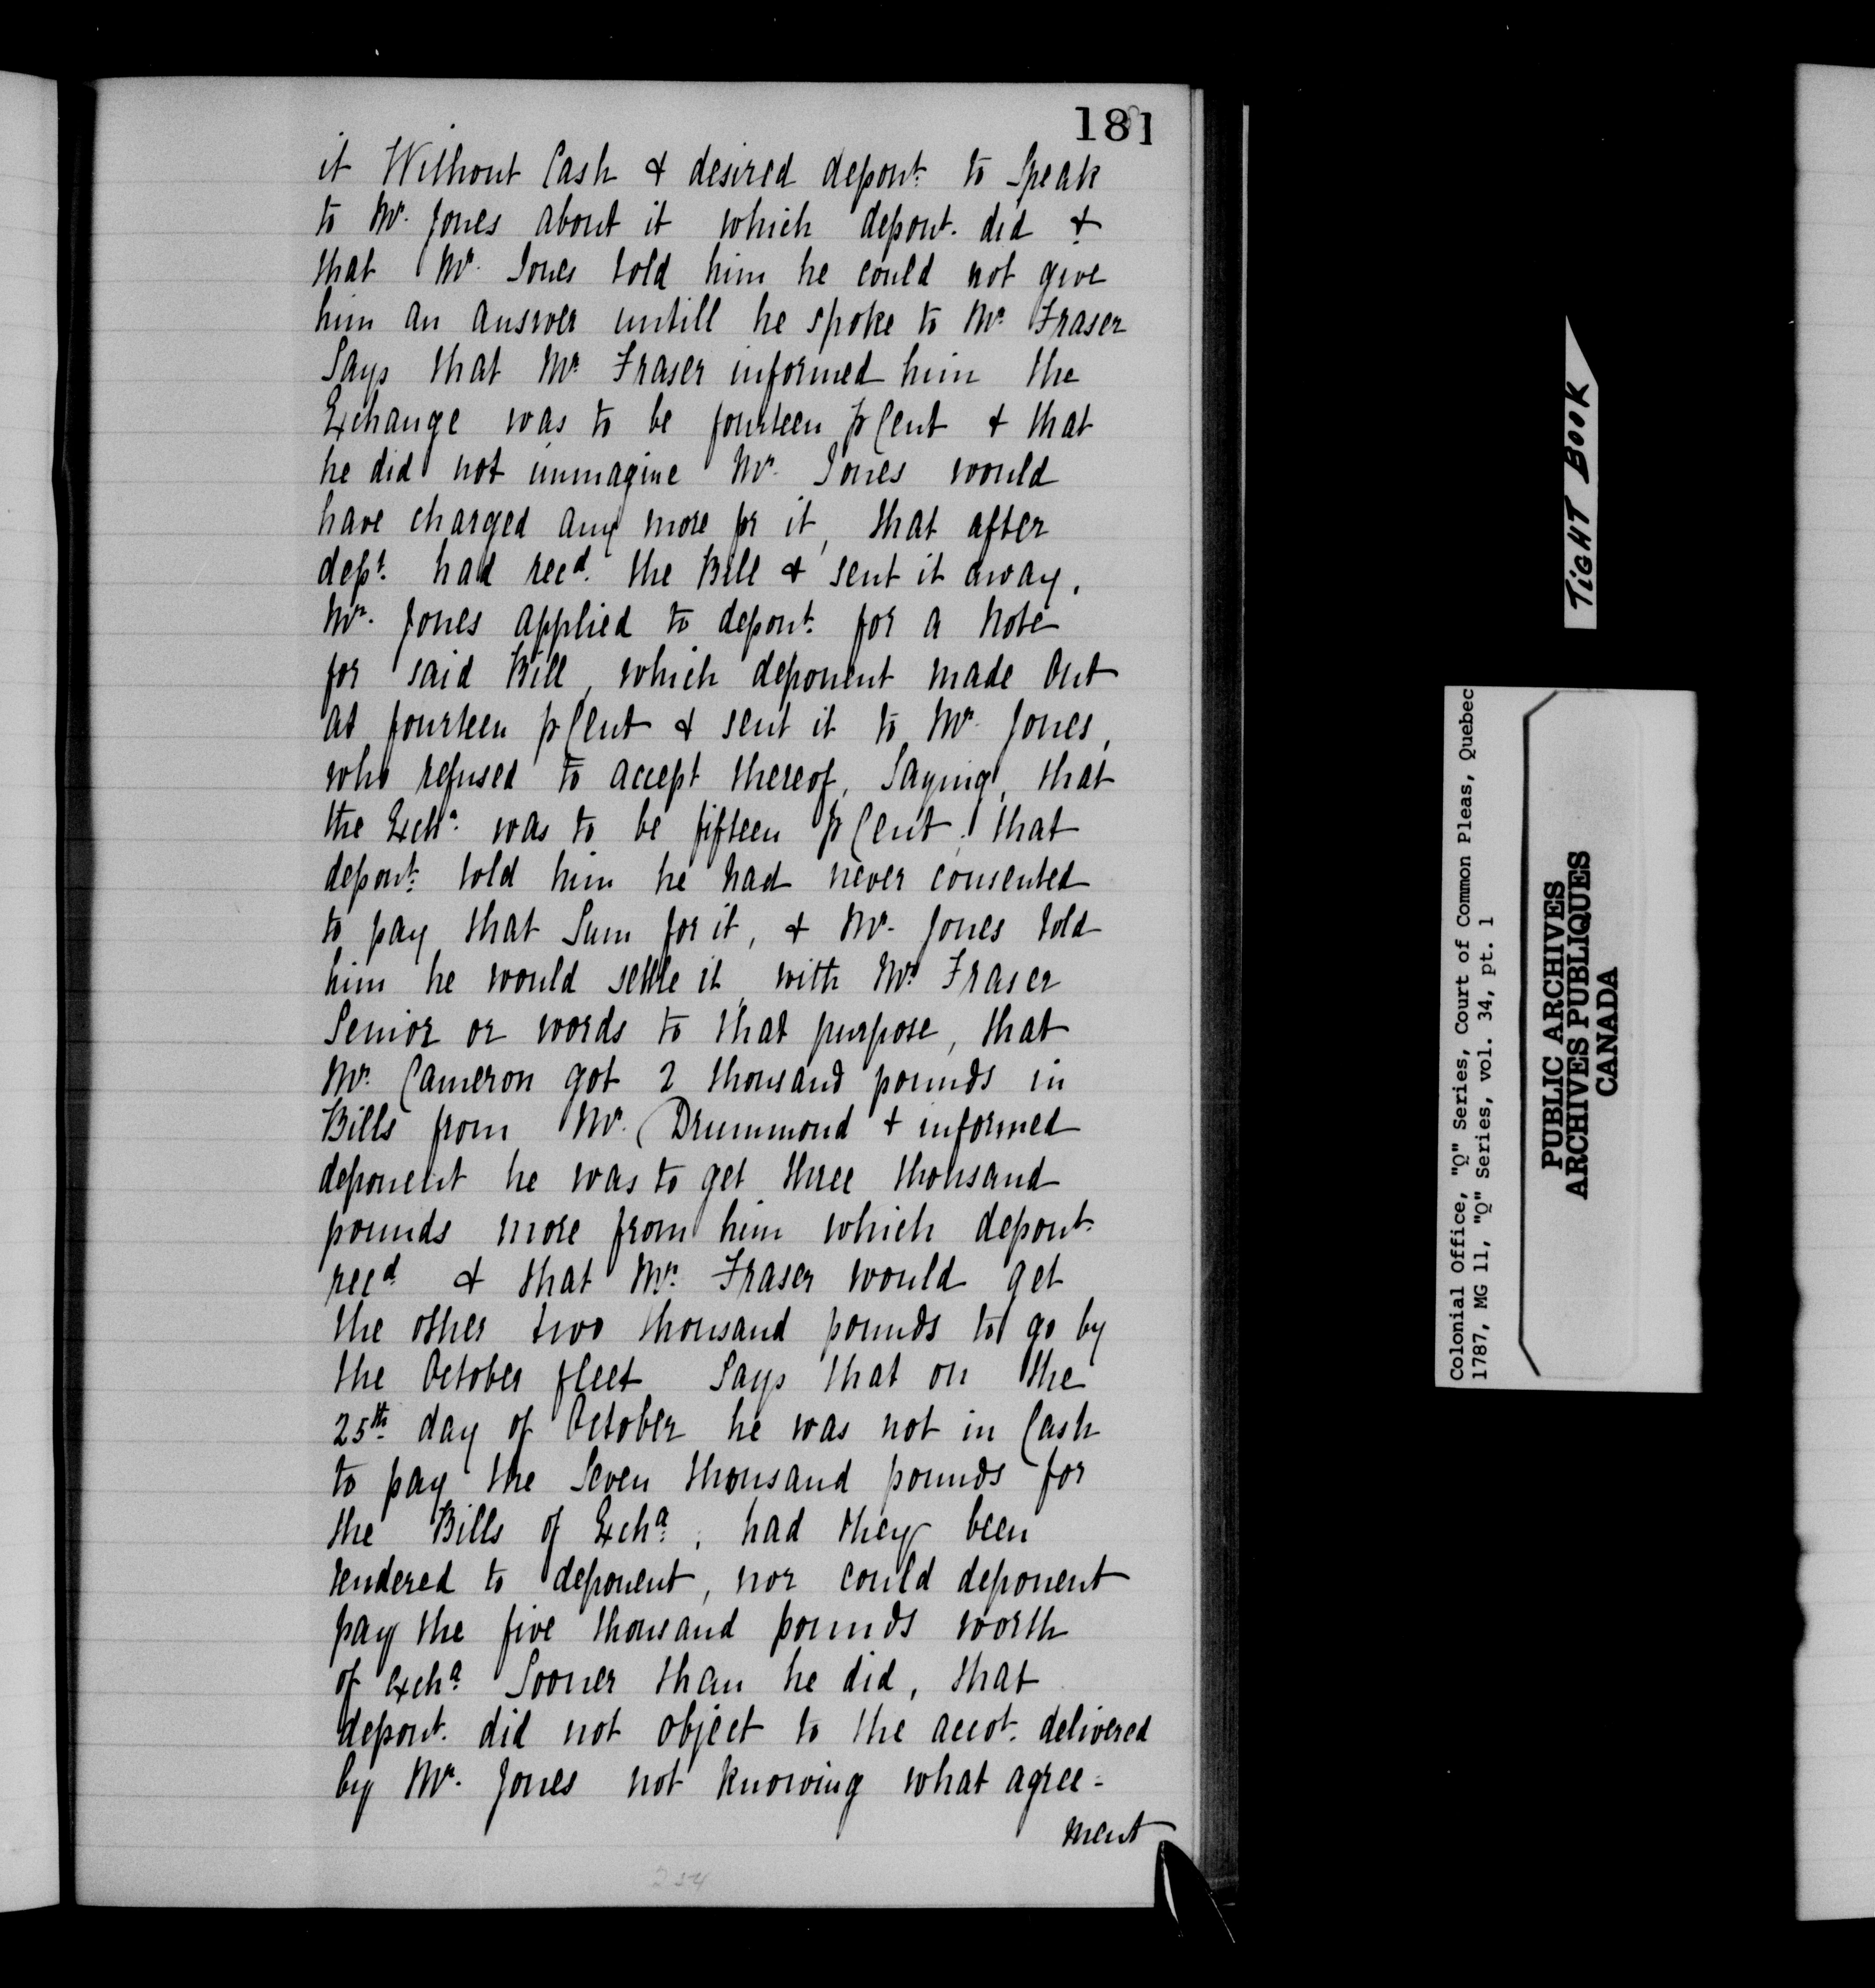 181
it Without Cash & desired depont. to Speak
to Mr. Jones about it which depont. did &
that Mr. Jones told him he could not give
him an answer untill he spoke to Mr. Fraser
Says that Mr. Fraser informed him the
Exchange was to be fourteen p Cent & that
he did not immagine Mr. Jones would
have charged any more for it, that after
dept. had recd. the Bill & sent it away,
Mr. Jones applied to depont. for a Note
for said Bill, which deponent made Out
at fourteen p Cent & sent it to Mr. Jones,
who refused to accept thereof, Saying, that
the Excha. was to be fifteen p Cent, that
depont. told him he had never consented
to pay that Sum for it, & Mr. Jones told
him he would settle it, with Mr. Fraser
Senior or words to that purpose, that
Mr. Cameron got 2 thousand pounds in
Bills from Mr. Drummond & informed
deponent he was to get three thousand
pounds more from him which depont.
recd. & that Mr. Fraser would get
the other two thousand pounds to go by
the October fleet Says that on the
25th. day of October he was not in Cash
to pay the Seven thousand pounds for
the Bills of Excha., had they been
tendered to deponent, nor could deponent
pay the five thousand pounds worth
of Excha. Sooner than he did, that
depont. did not object to the accot. delivered
by Mr. Jones not knowing what agree-
ment
234
TIGHT BOOK
Colonial Office, "Q" Series, Court of Common Pleas, Quebec
1787, MG 11, "Q" Series, vol. 34, pt. 1
PUBLIC ARCHIVES
ARCHIVES PUBLIQUES
CANADA